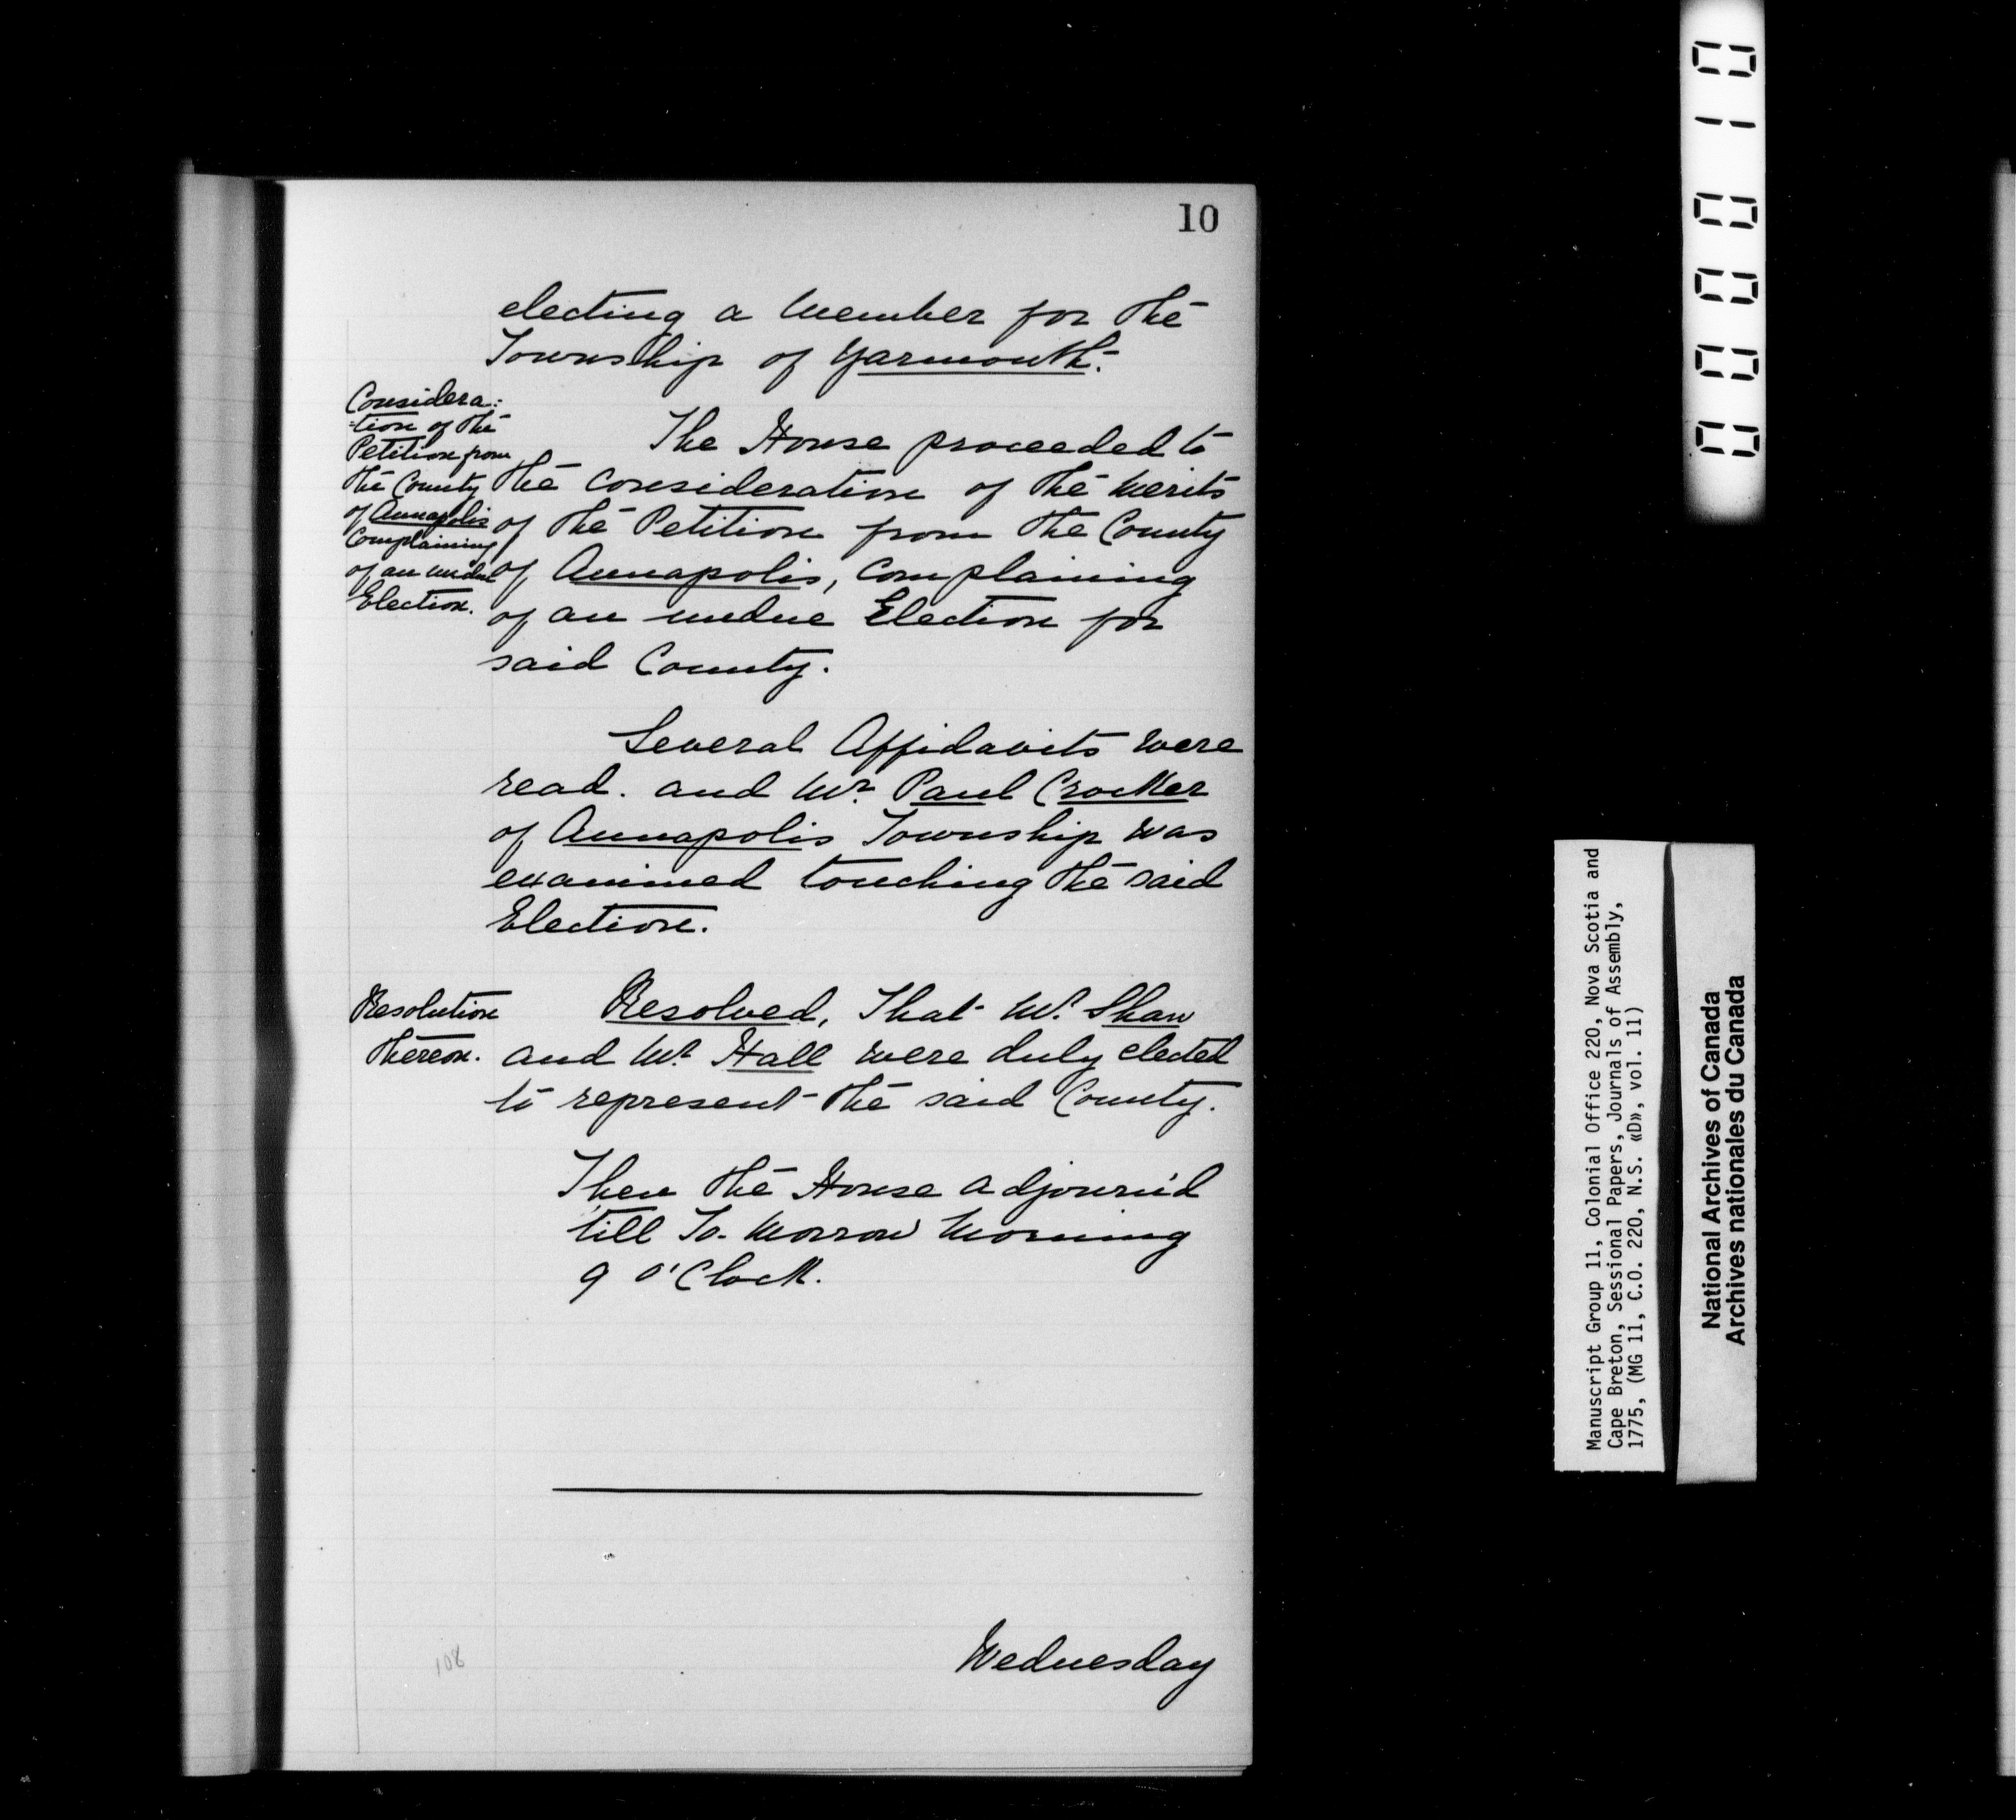 10
electing a Member for the
Township of Yarmouth.
Considera=
=tion of the
Petition from
the County
of Annapolis
Complaining
of an undue
Election.
The House proceeded to
the Consideration of the Merits
of the Petition from the County
of Annapolis, Complaining
of an undue Election for
said County.
Several Affidavits were
read. and Mr. Paul Crocker
of Annapolis Township was
examined touching the said
Election.
Resolution
thereon.
Resolved, That Mr. Shaw
and Mr. Hall were duly elected
to represent the said County.
Then the House adjourn'd
till To-Morrow Morning
9 o'Clock.
Wednesday
108
000010
Manuscript Group 11, Colonial Office 220, Nova Scotia and
Cape Breton, Sessional Papers, Journals of Assembly,
1775, (MG 11, C.O. 220, N.S. «D», vol. 11)
National Archives of Canada
Archives nationales du Canada